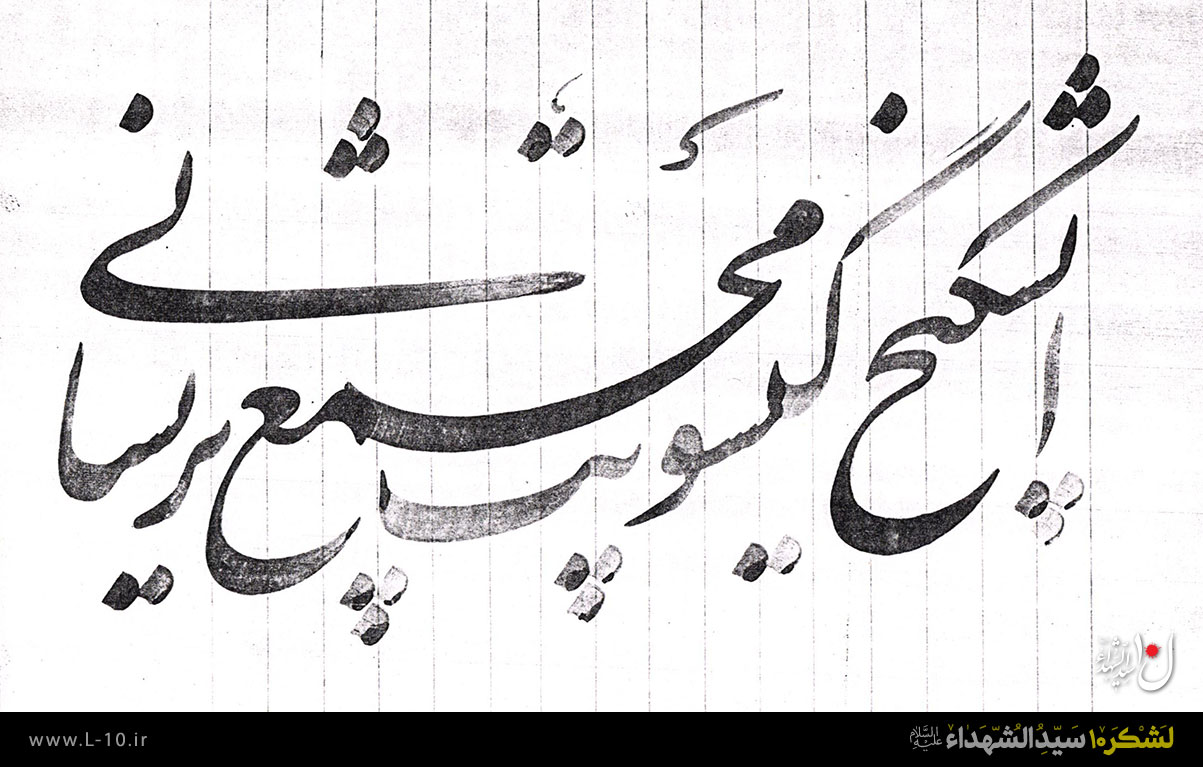 ای شکنج گیسویت مجمع پریشانی
سیدالشهداء
لَشْکَر۱۰ سَیِّدِالشُّهَداء عَلَیْهِ السَّلام
www.L-10.ir